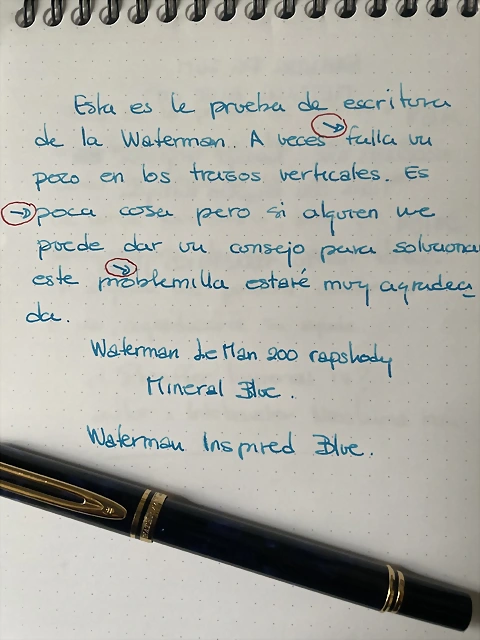 Esta es la prueba de escritura
de la Waterman. A veces falla un
poco en los trazos verticales. Es
poca cosa pero si alguien me
puede dar un consejo para solucionar
este problemilla estaré muy agradeci
da.
Waterman Le Man 200 rapshody
Mineral Blue.
Waterman Inspired Blue.